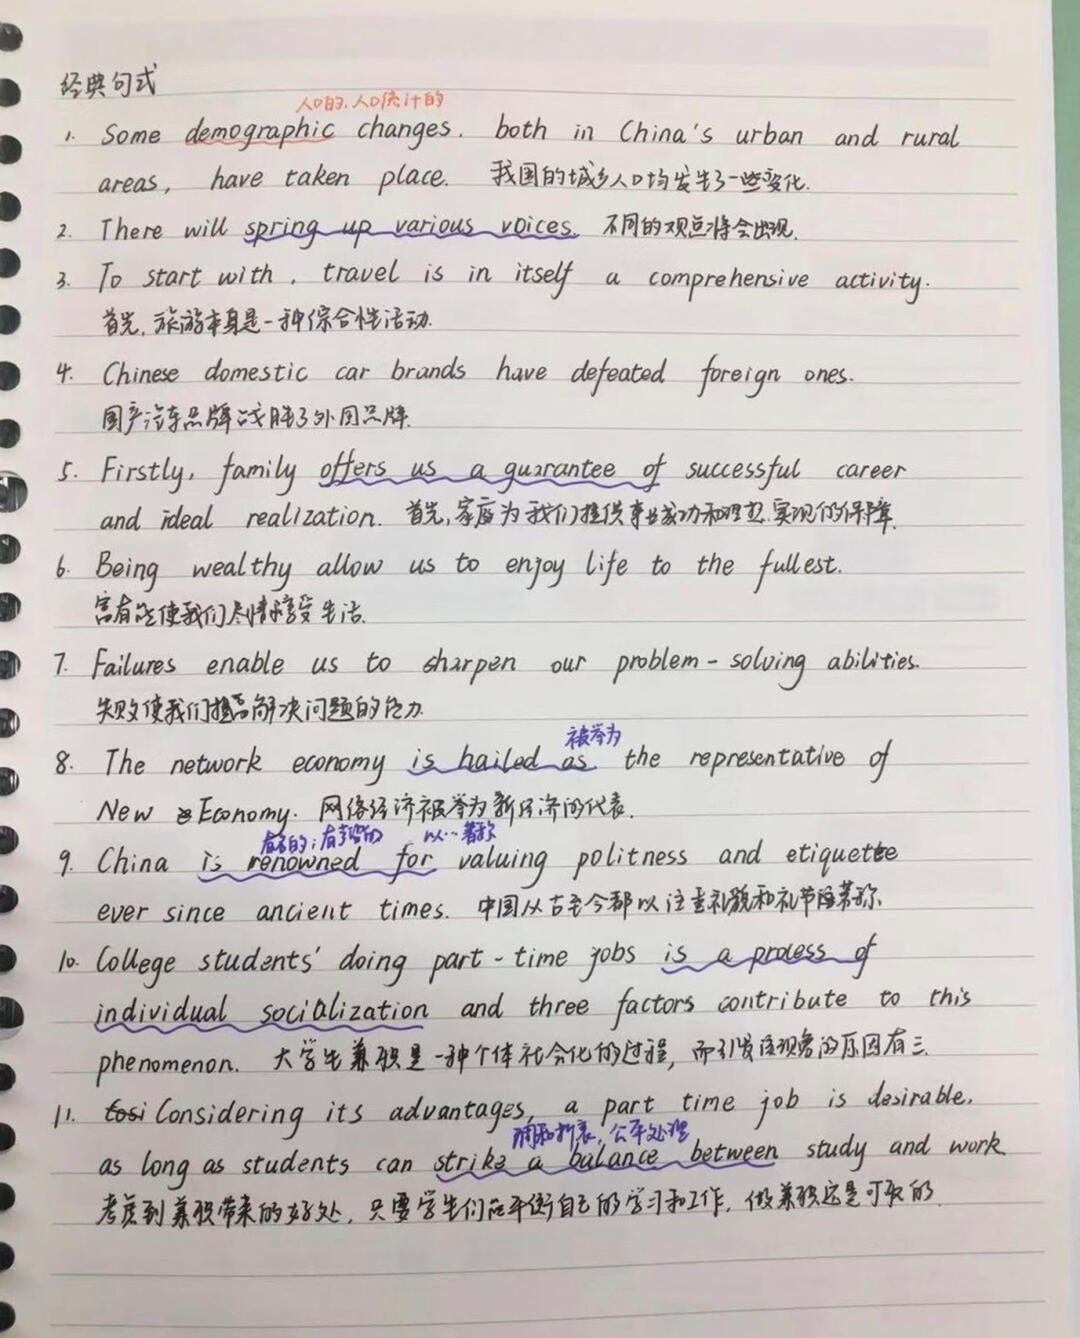 经典句式
人口的.人口统计的
1. Some demographic changes. both in China's urban and rural
areas, have taken place. 我国的城乡人口均发生了一些变化.
2. There will spring up various voices. 不同的观点将会出现.
3. To start with, travel is in itself a comprehensive activity.
首先,旅游本身是一种综合性活动.
4. Chinese domestic car brands have defeated foreign ones.
国产汽车品牌战胜了外国品牌.
5. Firstly, family offers us a guarantee of successful career
and ideal realization. 首先,家庭为我们提供事业成功和理想实现的保障.
6. Being wealthy allow us to enjoy life to the fullest.
富有能使我们尽情享受生活.
7. Failures enable us to sharpen our problem-solving abilities.
失败使我们提高解决问题的能力.
被誉为
8. The network economy is hailed as the representative of
New Economy. 网络经济被誉为新经济的代表.
有名的;有声望的 以…著称
9. China is renowned for valuing politness and etiquette
ever since ancient times. 中国从古至今都以注重礼貌和礼节著称.
10. College students' doing part-time jobs is a process of
individual socialization and three factors contribute to this
phenomenon. 大学生兼职是一种个体社会化的过程,而引发该现象的原因有三.
11. Considering its advantages, a part time job is desirable,
调和折衷,公平处理
as long as students can strike a balance between study and work
考虑到兼职带来的好处,只要学生们能平衡自己的学习和工作,做兼职还是可取的.